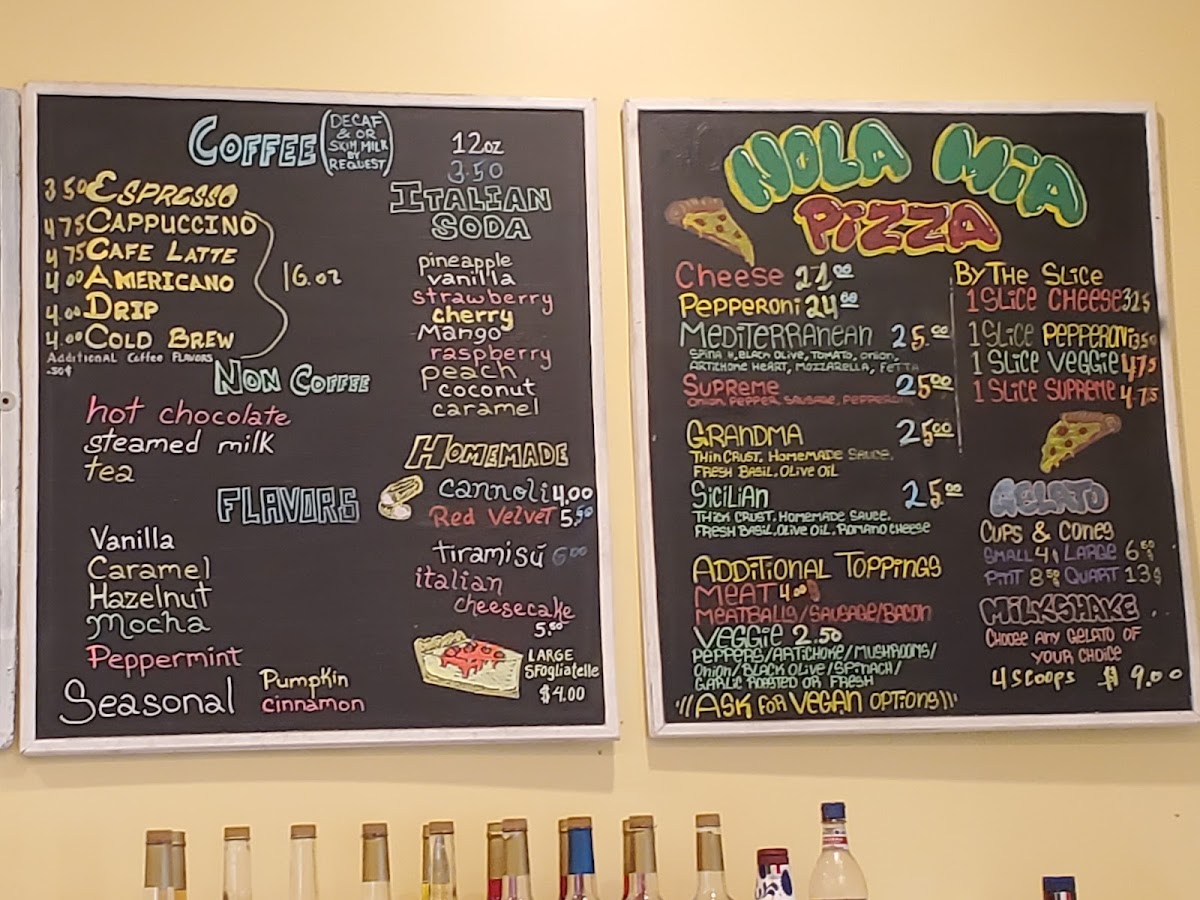 COFFEE (DECAF & OR SKIM MILK BY REQUEST)
3.50 ESPRESSO
4.75 CAPPUCCINO
4.75 CAFE LATTE
4.00 AMERICANO
4.00 DRIP
4.00 COLD BREW
16.oz
Additional Coffee FLAVORS
.50¢
NON COFFEE
hot chocolate
steamed milk
tea
FLAVORS
Vanilla
Caramel
Hazelnut
Mocha
Peppermint
Seasonal
Pumpkin
cinnamon
12oz
3.50
ITALIAN
SODA
pineapple
vanilla
strawberry
cherry
Mango
raspberry
peach
coconut
caramel
HOMEMADE
cannoli 4.00
Red Velvet 5.50
tiramisú 6.00
italian
cheesecake
5.50
LARGE
SFogliatelle
$4.00
NOLA MiA
PiZZA
Cheese 21.00
Pepperoni 24.00
MEDiTERRANEAN 25.00
BLACK OLIVE, TOMATO, onion,
ARTICHOKE HEART, MOZZARELLA, FETTA
SUPREME 25.00
ONION, PEPPER, SAUSAGE,
GRANDMA 25.00
THIN CRUST, HOMEMADE SAUCE,
FRESH BASIL, OLIVE OIL
SiCiLiAN 25.00
THICK CRUST, HOMEMADE SAUCE,
FRESH BASIL, OLIVE OIL, ROMANO CHEESE
ADDITIONAL TOPPINGS
MEAT 4.00
MEATBALLS/SAUSAGE/BACON
VEGGIE 2.50
PEPPERS/ARTICHOKE/MUSHROOMS/
ONION/BLACK OLIVE/SPINACH/
GARLIC ROASTED OR FRESH
ASK FOR VEGAN OPTIONS
BY THE SLICE
1 SLICE CHEESE 3.25
1 SLICE PEPPERONI 3.50
1 SLICE VEGGIE 4.75
1 SLICE SUPREME 4.75
GELATO
CUPS & CONES
SMALL 4 LARGE 6.50
PINT 8.50 QUART 13
MILKSHAKE
CHOOSE ANY GELATO OF
YOUR CHOICE
4 SCOOPS $ 9.00